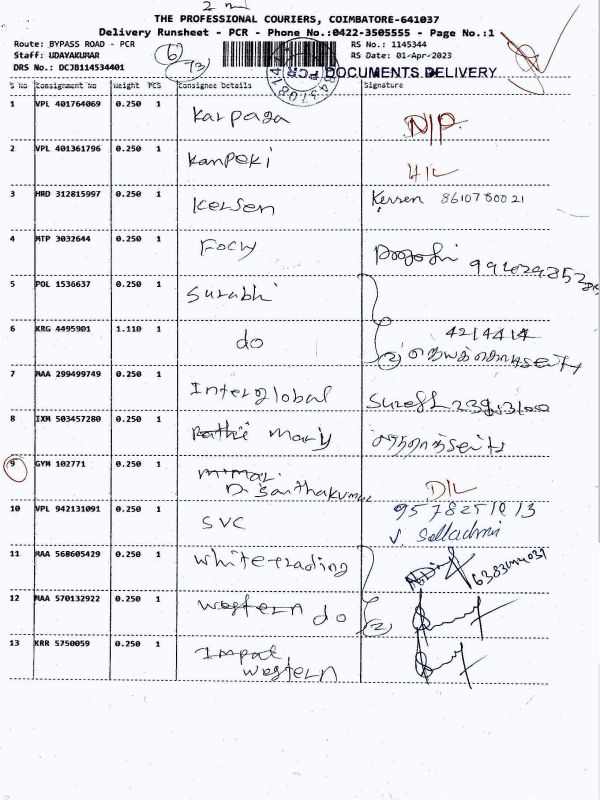 THE PROFESSIONAL COURIERS, COIMBATORE-641037
Delivery Runsheet - PCR - Phone No.:0422-3505555 - Page No.:1
Route: BYPASS ROAD - PCR
Staff: UDAYAKUMAR
DRS No.: DCJB114534401
RS No.: 1145344
RS Date: 01-Apr-2023
DOCUMENTS DELIVERY
S No Consignment No Weight PCS Consignee Details Signature
1 VPL 401764069 0.250 1 Karpaga D/P.
2 VPL 401361796 0.250 1 Kanpeki H/L
3 HRD 312815997 0.250 1 Kersen Kersen 8610780021
4 MTP 3032644 0.250 1
5 POL 1536637 0.250 1 Surabhi
6 KRG 4495901 1.110 1 do 4214414
7 MAA 299499749 0.250 1 Interglobal
8 IXM 503457280 0.250 1 Mary
9 GYM 102771 0.250 1 D. Santhakumar D/L
10 VPL 942131091 0.250 1 SVC
11 MAA 568605429 0.250 1 White trading
12 MAA 570132922 0.250 1 western do
13 KRR 5750059 0.250 1 Impal
western